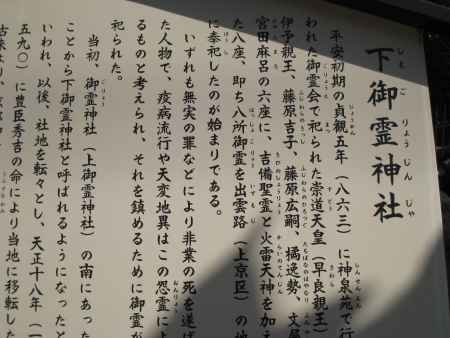 下御霊神社
しもごりょうじんじゃ
平安初期の貞観五年（八六三）に神泉苑で行
われた御霊会で祀られた崇道天皇（早良親王）
伊予親王、藤原吉子、藤原広嗣、橘逸勢、文屋
宮田麻呂の六座に、吉備聖霊と火雷天神を加え
た八座、即ち八所御霊を出雲路（上京区）の地
に奉祀したのが始まりである。
いずれも無実の罪などにより非業の死を遂げ
た人物で、疫病流行や天変地異はこの怨霊によ
るものと考えられ、それを鎮めるために御霊が
祀られた。
当初、御霊神社（上御霊神社）の南にあった
ことから下御霊神社と呼ばれるようになったと
いわれ、以後、社地を転々とし、天正十八年（一
五九〇）に豊臣秀吉の命により当地に移転した